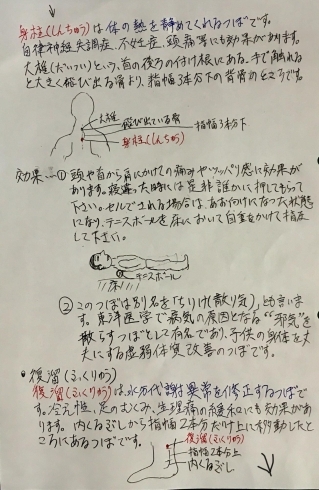 身柱(しんちゅう)は体の熱を静めてくれるつぼです。
自律神経失調症、不妊症、頭痛等にも効果が有ります。
大椎(だいつい)という、首の後ろの付け根にある。手で触れる
と大きく飛び出る骨より、指幅3本分下の背骨のところです。
大椎
飛び出ている骨
指幅3本分下
身柱(しんちゅう)
効果…① 頭や首から肩にかけての痛みやツッパリ感に効果が
あります。寝違った時には是非誰かに押してもらって
下さい。セルでされる場合は、あお向けになった状態
になり、テニスボールを床において自重をかけて指圧
して下さい。
床
テニスボール
② このつぼは別名を「ちりけ(散り気)」とも言いま
す。東洋医学で病気の原因となる"邪気"を
散らすつぼとして有名であり、子供の身体を丈
夫にする虚弱体質改善のつぼです。
・復溜(ふくりゅう)
復溜(ふくりゅう)は、水分代謝異常を修正するつぼで
す。冷え性、足のむくみ、生理痛の緩和にも効果があ
ります。内くるぶしから指幅2本分だけ上に移動したと
ころにあるつぼです。
復溜(ふくりゅう)
指幅2本分上
内くるぶし